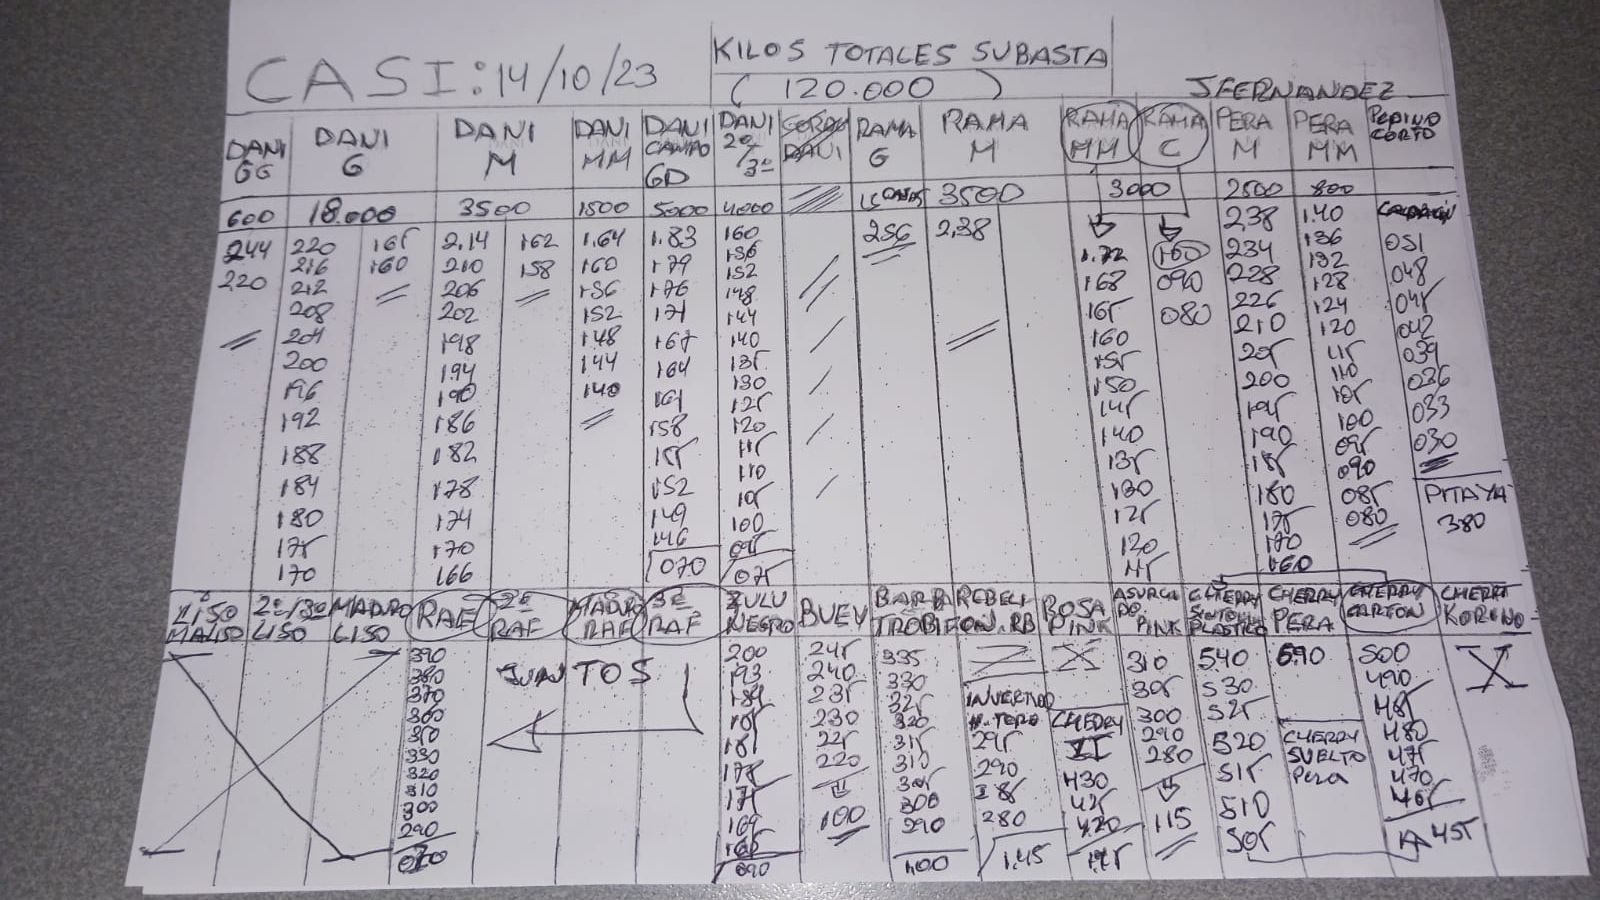 CASI: 14/10/23
KILOS TOTALES SUBASTA
(120.000)
J FERNANDEZ
DANI GG
DANI G
DANI M
DANI MM
DANI CANTO GD
DANI 2º/3º
GORDO DANI
RAMA G
RAMA M
RAMA MM
RAMA C
PERA M
PERA MM
PEPINO CORTO
600 18.000 3500 1500 5000 4000 3500 3000 2500 800
244 220 165 2.14 162 1.64 1.83 160 256 2.38 1.72 100 238 1.40 051
220 216 160 210 158 160 179 156 168 090 234 136 048
212 206 156 176 152 165 080 228 132 045
208 202 152 171 148 160 226 128 042
204 198 148 167 144 155 210 124 039
200 194 144 164 140 150 205 120 036
196 190 140 161 135 145 200 115 033
192 186 158 130 140 195 110 030
188 182 155 125 135 190 105
184 178 152 120 130 185 100
180 174 149 115 125 180 095
175 170 146 110 120 175 090
170 166 070 105 115 170 085
100 160 080
095
075
PITAYA
380
LISO MALISO
2º/3º LISO
MADURO LISO
RAF
2º RAF
MADURO RAF
3º RAF
ZULU NEGRO
BUEY
REBELION.RB
ROSA PINK
PINK
CHERRY PLASTICO
CHERRY PERA
CHERRY CARTON
CHERRY
390 JUNTOS 200 245 335 310 540 690 500
380 193 240 330 305 530 490
370 235 325 300 525 485
360 230 320 290 520 480
350 181 225 315 280 515 475
330 178 220 310 115 510 470
320 175 100 305 505 465
310 169 300 455
300 165 290
290 090 100
070
295
290
285
280
1.45
CHERRY
430
425
420
CHERRY
SUELTO
pera